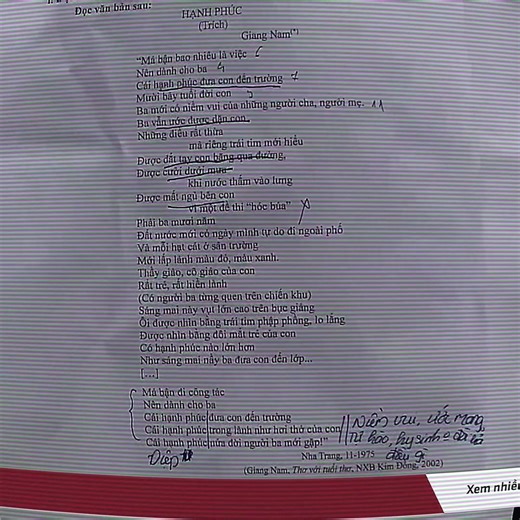 Đọc văn bản sau:
HẠNH PHÚC
(Trích)
Giang Nam(*)
"Má bận bao nhiêu là việc
Nên dành cho ba
Cái hạnh phúc đưa con đến trường
Mười bảy tuổi đời con
Ba mới có niềm vui của những người cha, người mẹ.
Ba vẫn ước được dặn con
Những điều rất thừa
mà riêng trái tim mới hiểu
Được dắt tay con băng qua đường,
Được cười dưới mưa
khi nước thấm vào lưng
Được mất ngủ bên con
vì một đề thi "hóc búa"
Phải ba mươi năm
Đất nước mới có ngày mình tự do đi ngoài phố
Và mỗi hạt cát ở sân trường
Mới lấp lánh màu đỏ, màu xanh.
Thầy giáo, cô giáo của con
Rất trẻ, rất hiền lành
(Có người ba từng quen trên chiến khu)
Sáng mai này vụt lớn cao trên bục giảng
Ôi được nhìn bằng trái tim phập phồng, lo lắng
Được nhìn bằng đôi mắt trẻ của con
Có hạnh phúc nào lớn hơn
Như sáng mai nầy ba đưa con đến lớp...
[...]
Má bận đi công tác
Nên dành cho ba
Cái hạnh phúc đưa con đến trường
Cái hạnh phúc trong lành như hơi thở của con
Cái hạnh phúc nửa đời người ba mới gặp!"
Niềm vui, ước mong,
Tự hào, hy sinh
Điệp
Nha Trang, 11-1975
(Giang Nam, Thơ với tuổi thơ, NXB Kim Đồng, 2002)
Xem nhiều